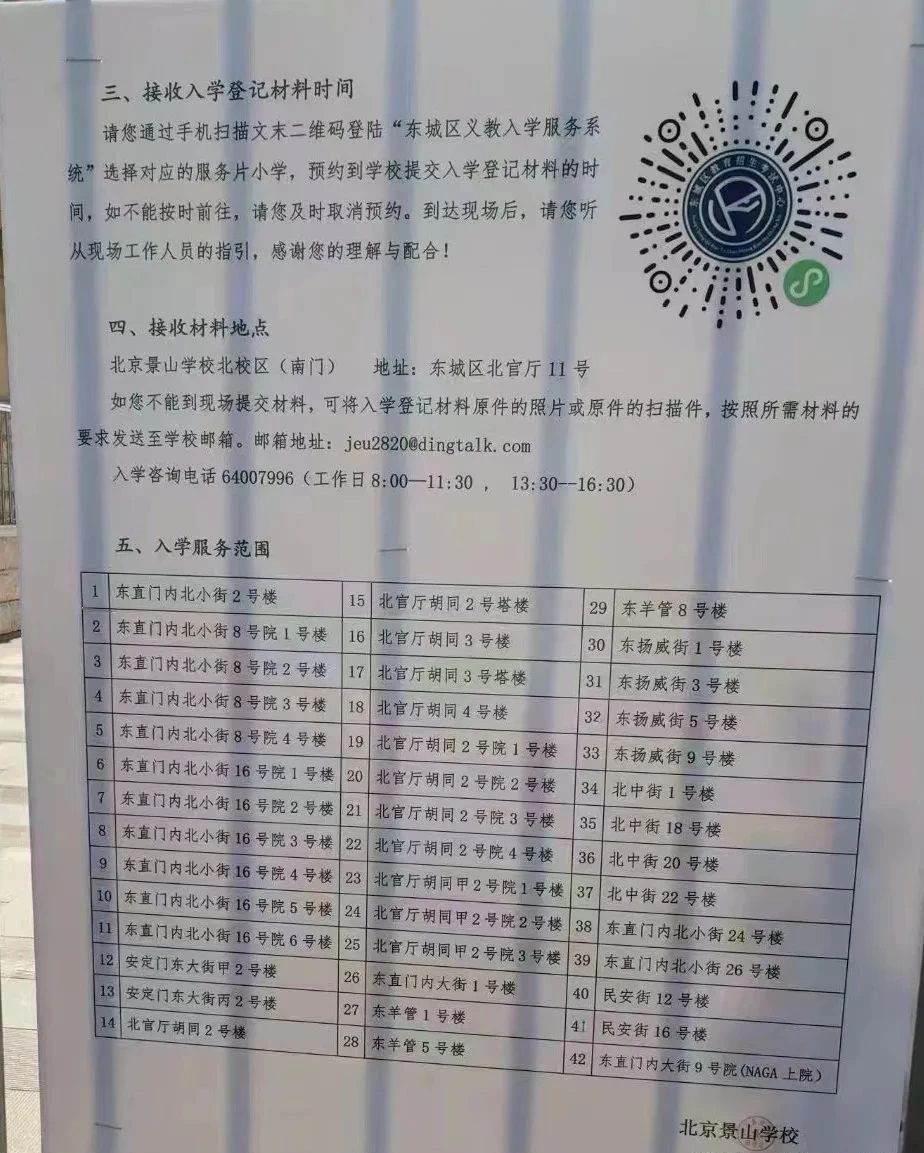 三、接收入学登记材料时间
请您通过手机扫描文末二维码登陆“东城区义教入学服务系
统”选择对应的服务片小学，预约到学校提交入学登记材料的时
间，如不能按时前往，请您及时取消预约。到达现场后，请您听
从现场工作人员的指引，感谢您的理解与配合！
东城区教育招生考试中心
四、接收材料地点
北京景山学校北校区（南门） 地址：东城区北官厅 11 号
如您不能到现场提交材料，可将入学登记材料原件的照片或原件的扫描件，按照所需材料的
要求发送至学校邮箱。邮箱地址：jeu2820@dingtalk.com
入学咨询电话 64007996（工作日 8:00—11:30 ， 13:30--16:30）
五、入学服务范围
1 东直门内北小街 2 号楼 15 北官厅胡同 2 号塔楼 29 东羊管 8 号楼
2 东直门内北小街 8 号院 1 号楼 16 北官厅胡同 3 号楼 30 东扬威街 1 号楼
3 东直门内北小街 8 号院 2 号楼 17 北官厅胡同 3 号塔楼 31 东扬威街 3 号楼
4 东直门内北小街 8 号院 3 号楼 18 北官厅胡同 4 号楼 32 东扬威街 5 号楼
5 东直门内北小街 8 号院 4 号楼 19 北官厅胡同 2 号院 1 号楼 33 东扬威街 9 号楼
6 东直门内北小街 16 号院 1 号楼 20 北官厅胡同 2 号院 2 号楼 34 北中街 1 号楼
7 东直门内北小街 16 号院 2 号楼 21 北官厅胡同 2 号院 3 号楼 35 北中街 18 号楼
8 东直门内北小街 16 号院 3 号楼 22 北官厅胡同 2 号院 4 号楼 36 北中街 20 号楼
9 东直门内北小街 16 号院 4 号楼 23 北官厅胡同甲 2 号院 1 号楼 37 北中街 22 号楼
10 东直门内北小街 16 号院 5 号楼 24 北官厅胡同甲 2 号院 2 号楼 38 东直门内北小街 24 号楼
11 东直门内北小街 16 号院 6 号楼 25 北官厅胡同甲 2 号院 3 号楼 39 东直门内北小街 26 号楼
12 安定门东大街甲 2 号楼 26 东直门内大街 1 号楼 40 民安街 12 号楼
13 安定门东大街丙 2 号楼 27 东羊管 1 号楼 41 民安街 16 号楼
14 北官厅胡同 2 号楼 28 东羊管 5 号楼 42 东直门内大街 9 号院(NAGA 上院）
北京景山学校